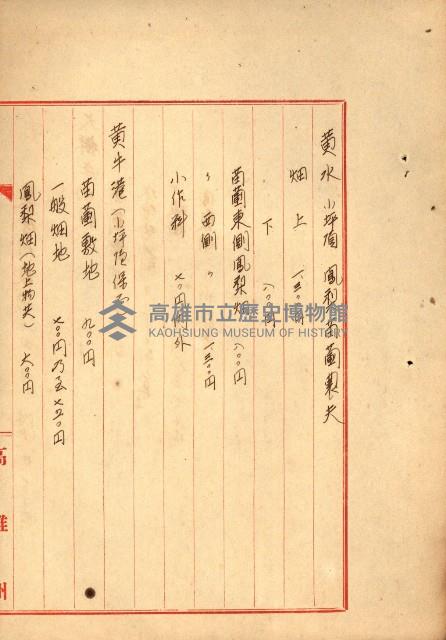 黄水 小坪頂 鳳利苗圃裏夫
畑 上 一、三〇〇円
下 八〇〇円
苗圃東側鳳梨畑 八〇〇円
〃 西側 〃 一、三〇〇円
小作料 七〇円 外
黄牛港（小坪頂保
苗圃敷地 九〇〇円
一般畑地 七〇〇円乃至七二〇円
鳳梨畑（地上物共） 六〇〇円
高雄州
高雄市立歷史博物館
KAOHSIUNG MUSEUM OF HISTORY